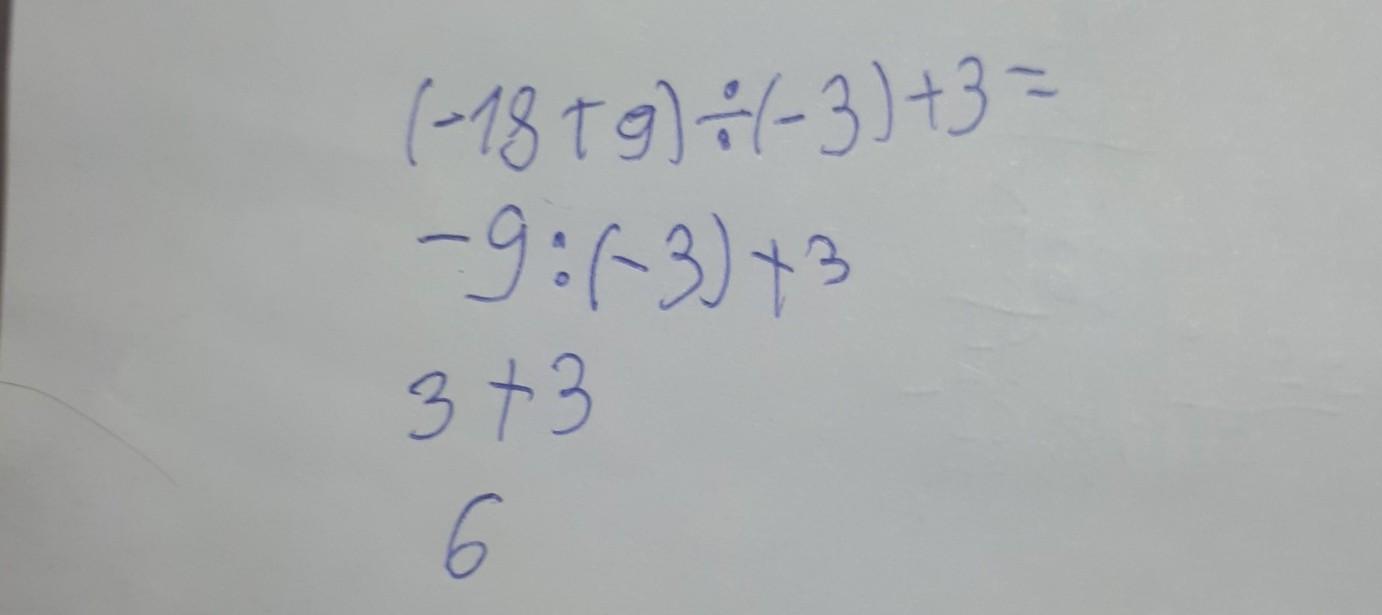 (-18+9)÷(-3)+3=
-9:(-3)+3
3+3
6